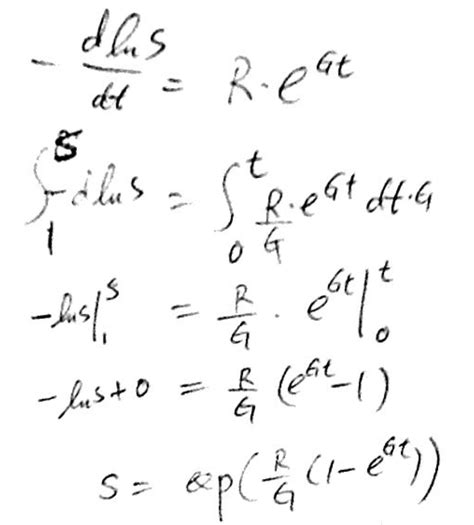 - dlns/dt = R·e^Gt
∫_1^s -dlns = ∫_0^t R/G·e^Gt dt·G
-lns|_1^s = R/G · e^Gt|_0^t
-lns+0 = R/G (e^Gt-1)
s = exp(R/G (1-e^Gt))